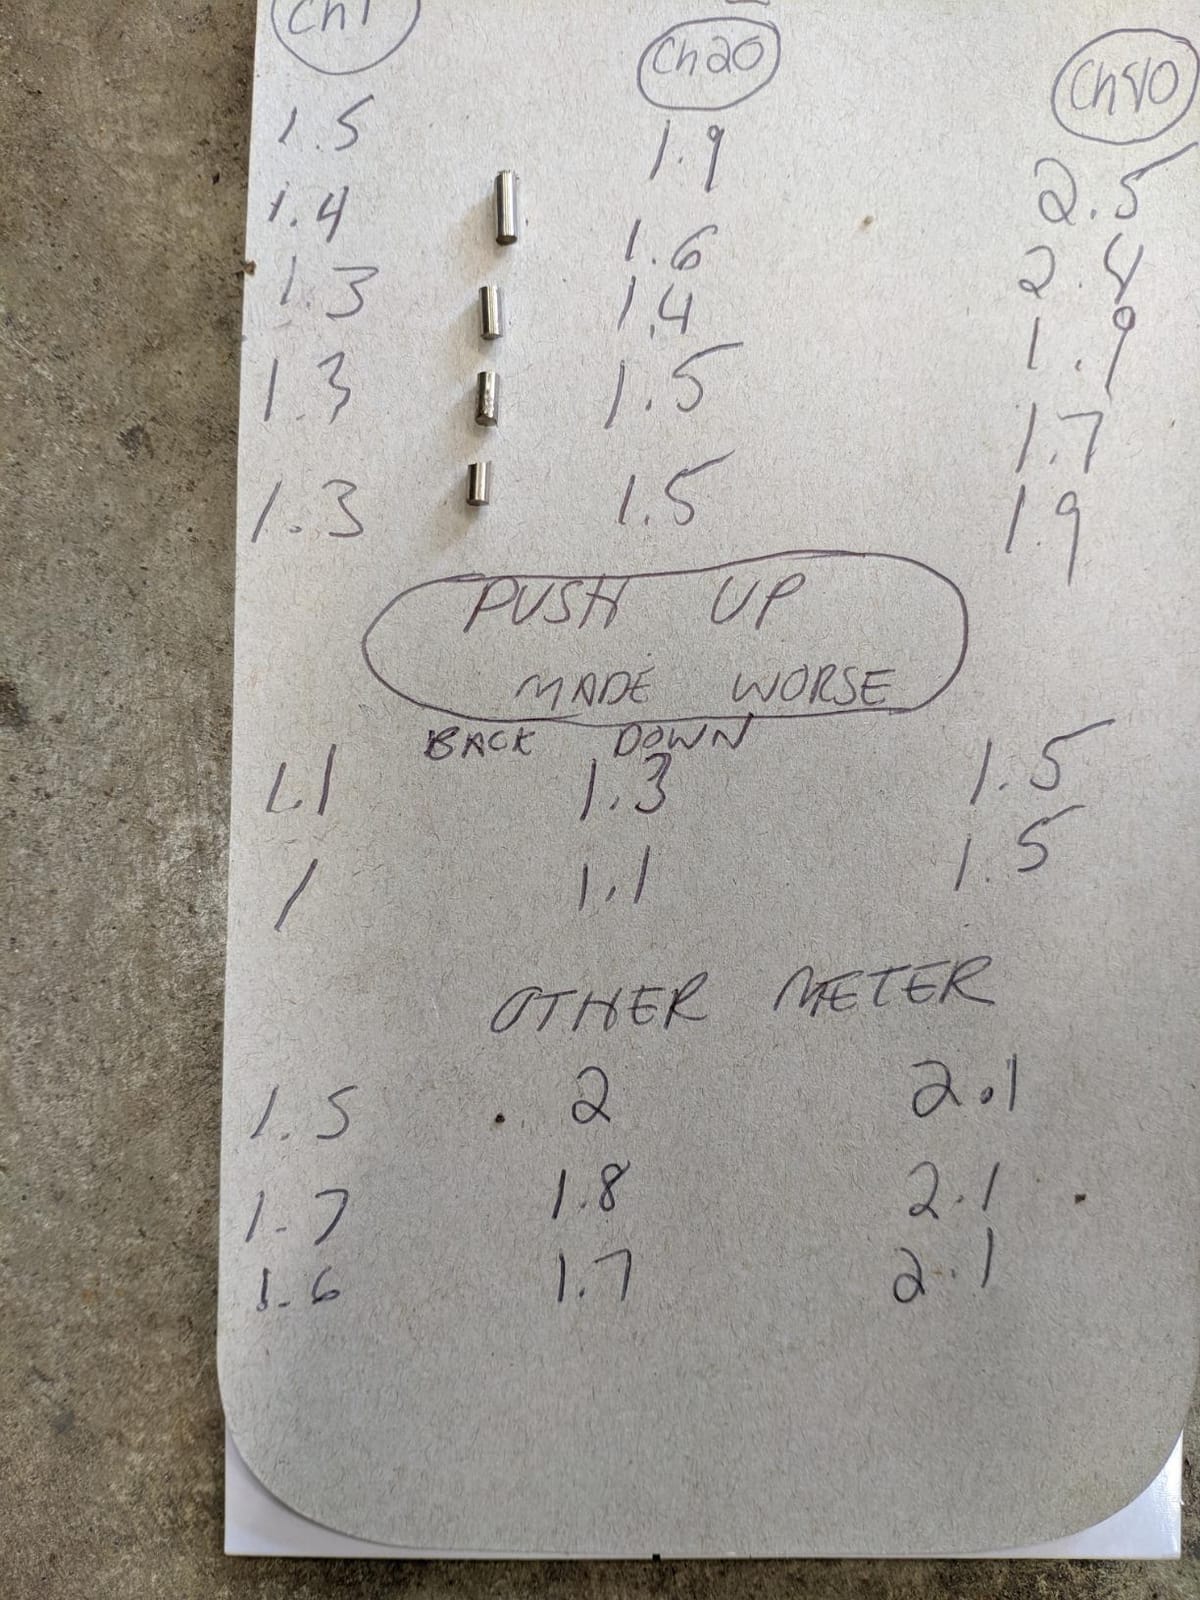 Ch1 Ch20 Ch40
1.5 1.9 2.5
1.4 1.6 2.4
1.3 1.4 1.9
1.3 1.5 1.7
1.3 1.5 1.9
PUSH UP
MADE WORSE
BACK DOWN
1.1 1.3 1.5
1 1.1 1.5
OTHER METER
1.5 2 2.1
1.7 1.8 2.1
1.6 1.7 2.1